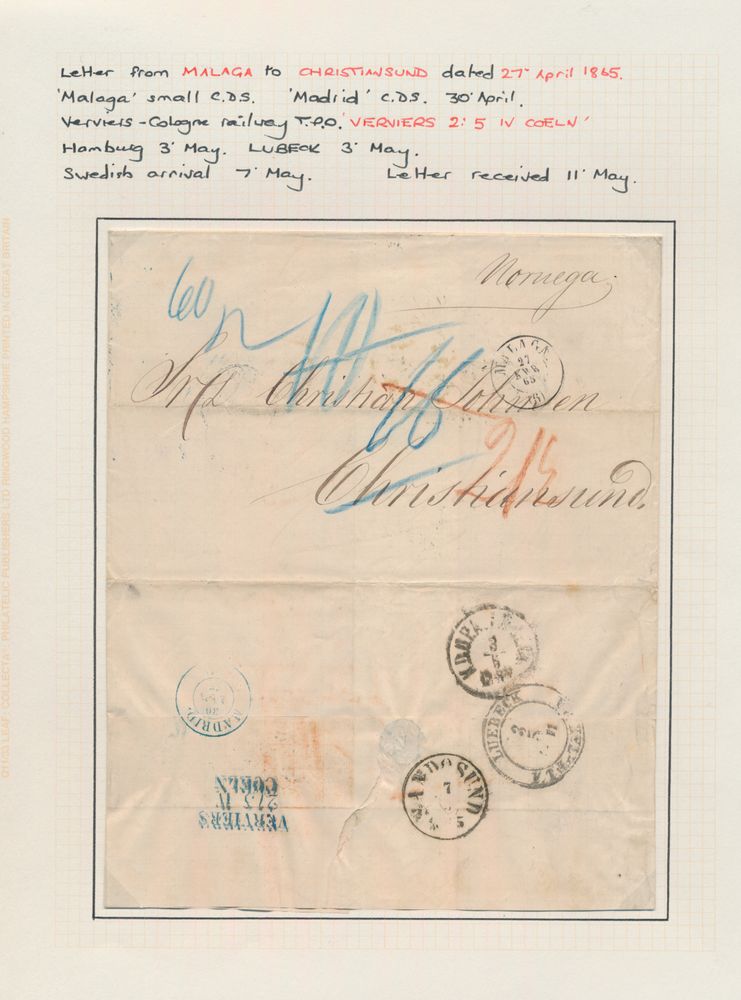 Letter from MALAGA to CHRISTIANSUND dated 27 April 1865.
'Malaga' small C.D.S. 'Madrid' C.D.S. 30 April.
Verviers-Cologne railway T.P.O. 'VERVIERS 2:5 IV COELN'
Hamburg 3 May. LUBECK 3 May.
Swedish arrival 7 May. Letter received 11 May.
Noruega
60
66
MALAGA
27
ABR
65
Christian Johnsen
Christiansund.
3
5
MADRID
LUEBECK
SANDÖSUND
7
VERVIERS
2/5 IV
COELN
LEAF COLLECTA- PHILATELIC PUBLISHERS LTD RINGWOOD HAMPSHIRE PRINTED IN GREAT BRITAIN